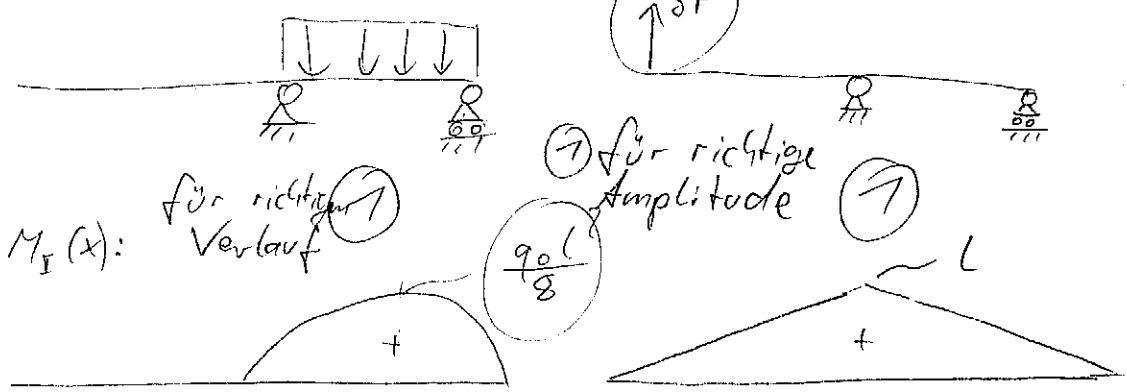 δF
① für richtige
Amplitude ①
für richtigen ①
Verlauf
M_I(x):
q₀l/8
l
+
+